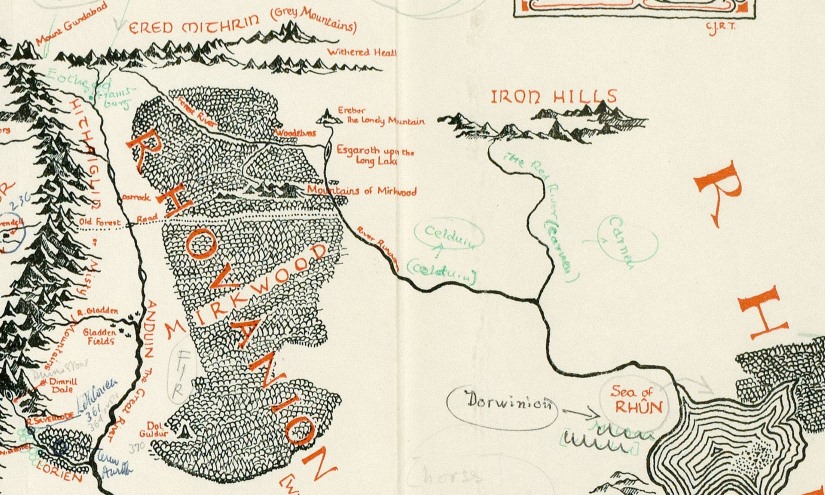 C.J.R.T.
Mount Gundabad
ERED MITHRIN (Grey Mountains)
Withered Heath
Eotheod
Framsburg
HITHAIGLIR
Forest River
Erebor
The Lonely Mountain
IRON HILLS
Woodelves
Esgaroth upon the
Long Lake
The Red River (Carnen)
Mountains of Mirkwood
Carrock
236
Old Forest Road
RHOVANION
RH
Celduin
(Celduin)
Carnen
River Running
MIRKWOOD
Misty Mountains
R. Gladden
Gladden
Fields
ANDUIN the Great River
FIR
Dimrill
Dale
Lothlórien
361
R. Silverlode
Dol
Guldur
370
LORIEN
Dorwinion
Sea of
RHÛN
horse